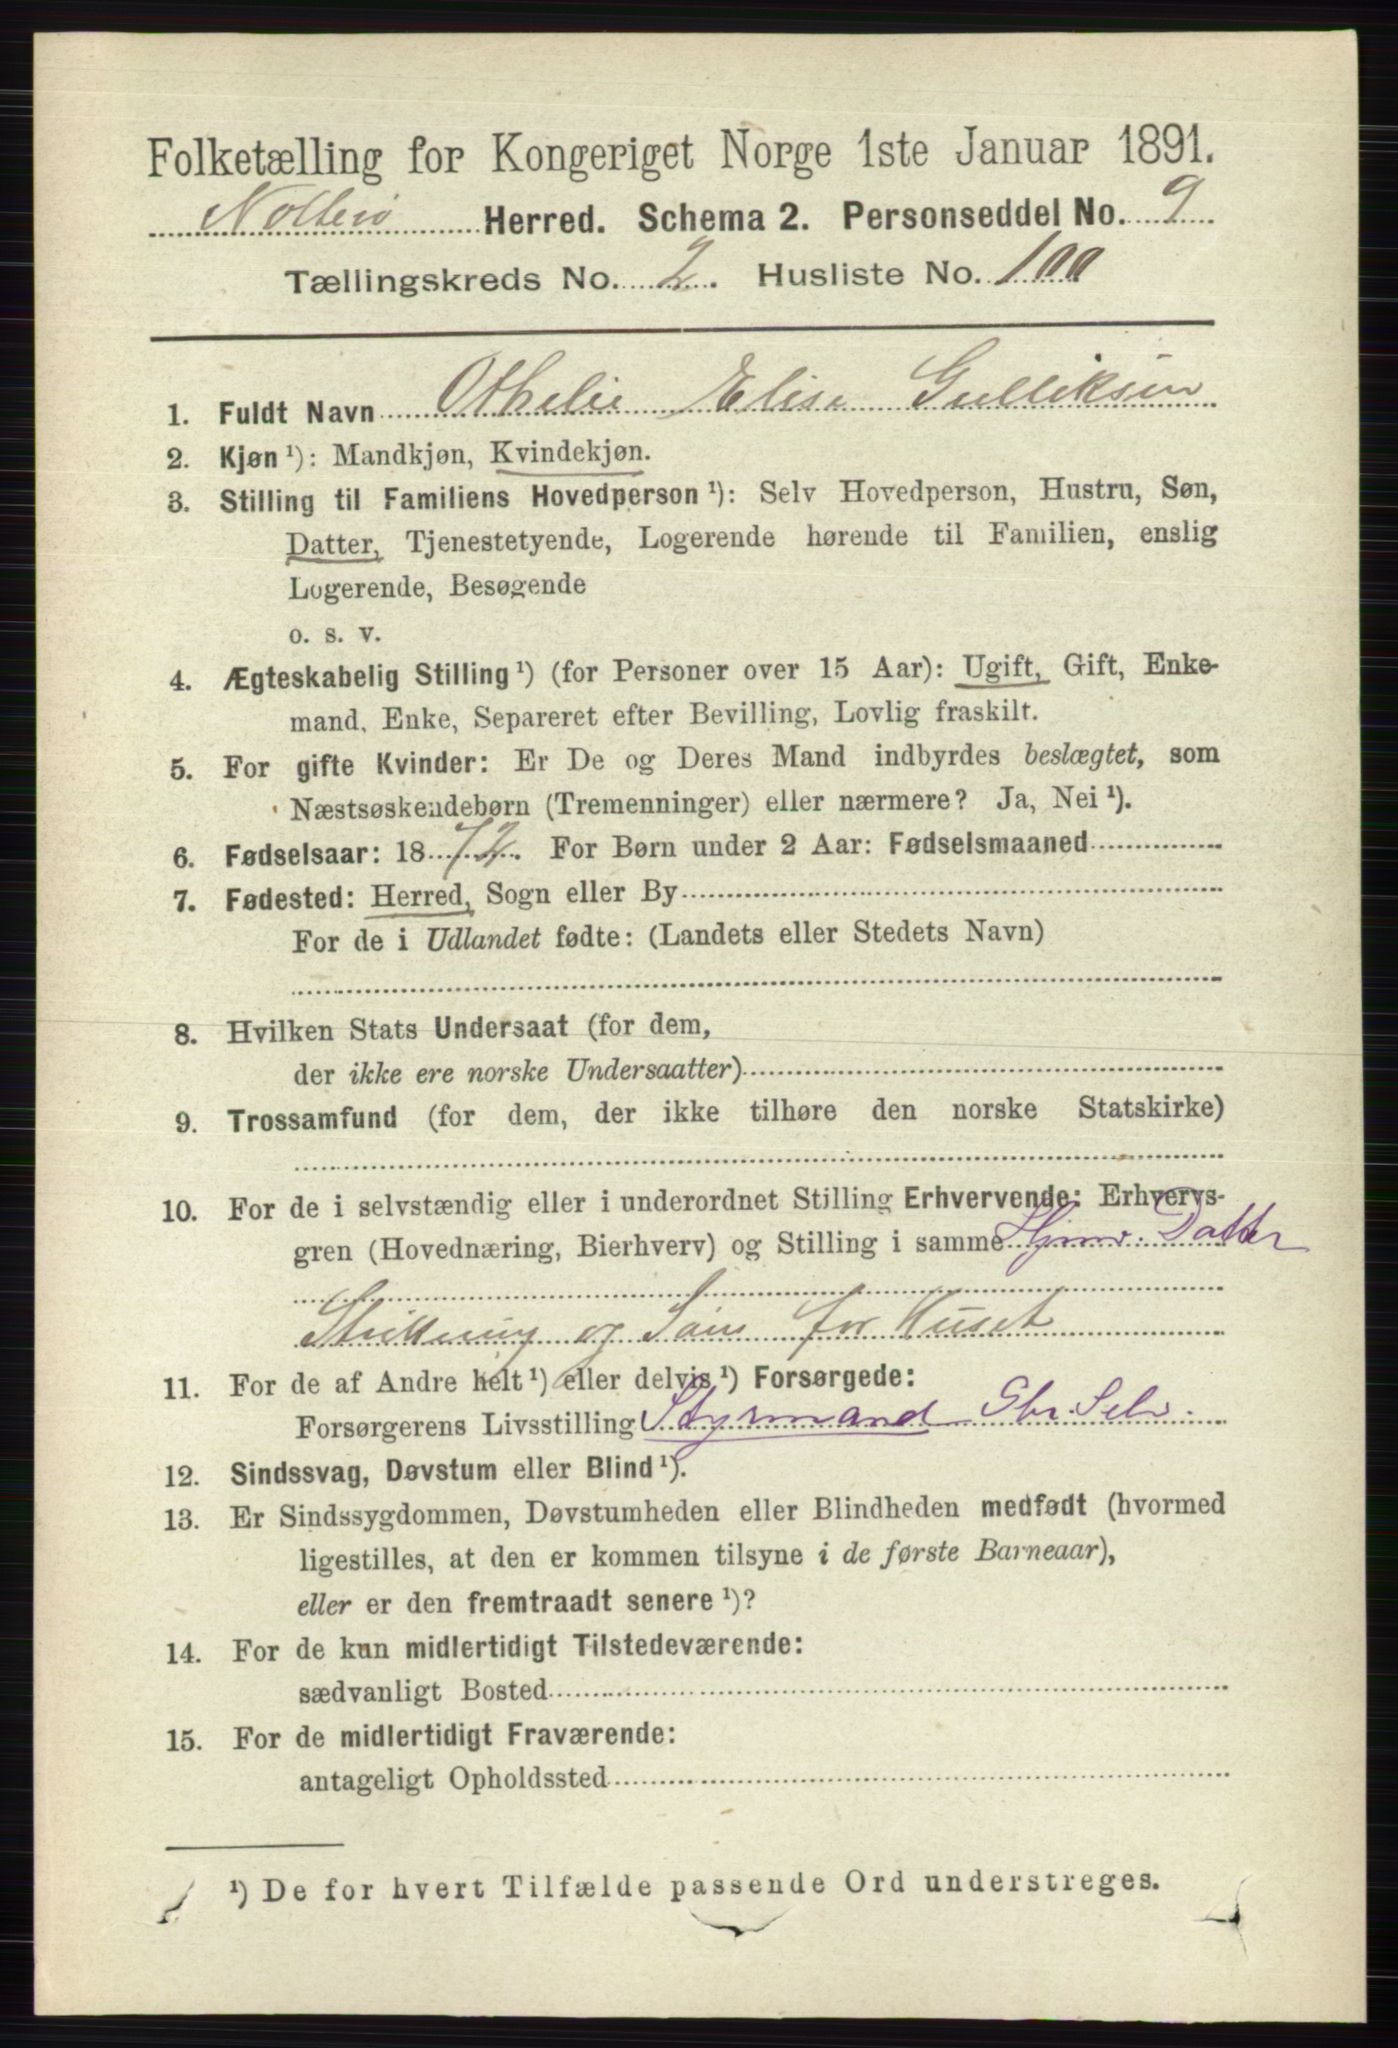 Folketælling for Kongeriget Norge 1ste Januar 1891.
Nøtterø Herred. Schema 2. Personseddel No. 9
Tællingskreds No. 2. Husliste No. 100
1. Fuldt Navn Othelie Elise Gulliksen
2. Kjøn ¹): Mandkjøn, Kvindekjøn.
3. Stilling til Familiens Hovedperson ¹): Selv Hovedperson, Hustru, Søn,
Datter, Tjenestetyende, Logerende hørende til Familien, enslig
Logerende, Besøgende
o. s. v.
4. Ægteskabelig Stilling ¹) (for Personer over 15 Aar): Ugift, Gift, Enke-
mand, Enke, Separeret efter Bevilling, Lovlig fraskilt.
5. For gifte Kvinder: Er De og Deres Mand indbyrdes beslægtet, som
Næstsøskendebørn (Tremenninger) eller nærmere? Ja, Nei ¹).
6. Fødselsaar: 1872. For Børn under 2 Aar: Fødselsmaaned
7. Fødested: Herred, Sogn eller By
For de i Udlandet fødte: (Landets eller Stedets Navn)
8. Hvilken Stats Undersaat (for dem,
der ikke ere norske Undersaatter)
9. Trossamfund (for dem, der ikke tilhøre den norske Statskirke)
10. For de i selvstændig eller i underordnet Stilling Erhvervende: Erhvervs-
gren (Hovednæring, Bierhverv) og Stilling i samme Hjmv. Datter
Strikning og Søm for Huset
11. For de af Andre helt ¹) eller delvis ¹) Forsørgede:
Forsørgerens Livsstilling Styrmand Gbr. Selv.
12. Sindssvag, Døvstum eller Blind ¹).
13. Er Sindssygdommen, Døvstumheden eller Blindheden medfødt (hvormed
ligestilles, at den er kommen tilsyne i de første Barneaar),
eller er den fremtraadt senere ¹)?
14. For de kun midlertidigt Tilstedeværende:
sædvanligt Bosted
15. For de midlertidigt Fraværende:
antageligt Opholdssted
¹) De for hvert Tilfælde passende Ord understreges.